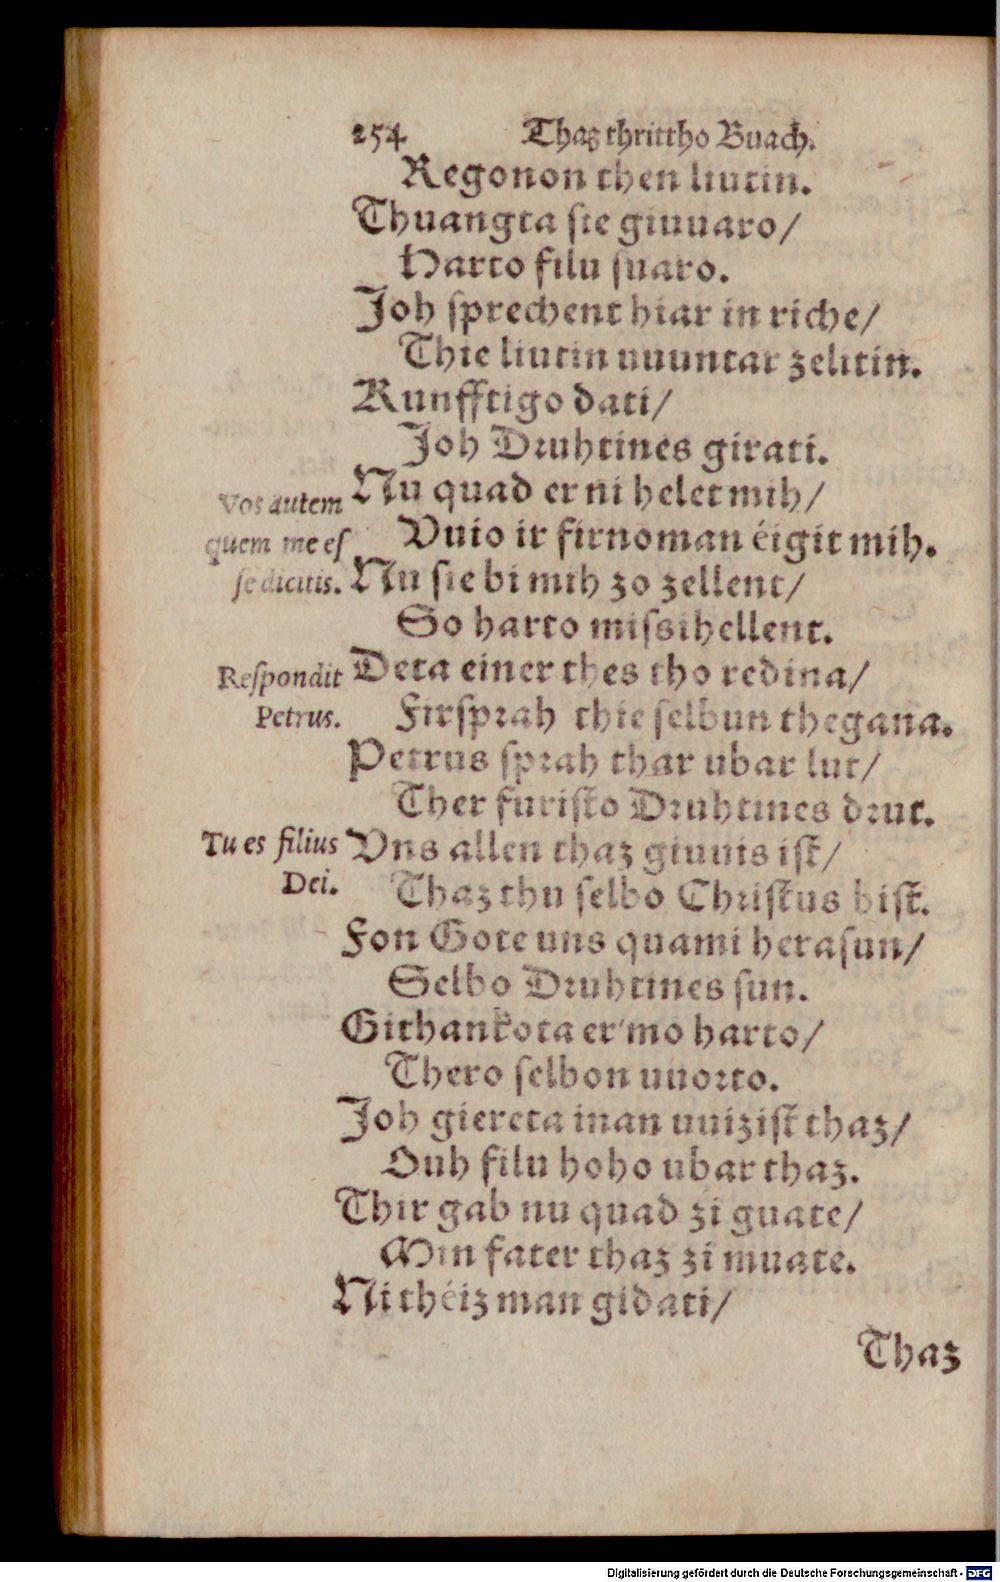 254 Thaz thrittho Buach.
Regonon then liutin.
Thuangta ſie giuuaro/
Harto filu ſuaro.
Joh ſprechent hiar in riche/
Thie liutin uuuntar zelitin.
Kunfftigo dati/
Joh Druhtines girati.
Vos autem
quem me eſ
ſe dicitis.
Nu quad er ni helet mih/
Vuio ir firnoman éigit mih.
Nu ſie bi mih zo zellent/
So harto miſsihellent.
Reſpondit
Petrus.
Deta einer thes tho redina/
Firſprah thie ſelbun thegana.
Petrus ſprah thar ubar lut/
Ther furiſto Druhtines drut.
Tu es filius
Dei.
Vns allen thaz giuuis iſt/
Thaz thu ſelbo Chriſtus biſt.
Fon Gote uns quami heraſun/
Selbo Druhtines ſun.
Githankota er'mo harto/
Thero ſelbon uuorto.
Joh giereta inan uuiziſt thaz/
Ouh filu hoho ubar thaz.
Thir gab nu quad zi guate/
Min fater thaz zi muate.
Ni théiz man gidati/
Thaz
Digitalisierung gefördert durch die Deutsche Forschungsgemeinschaft - DFG